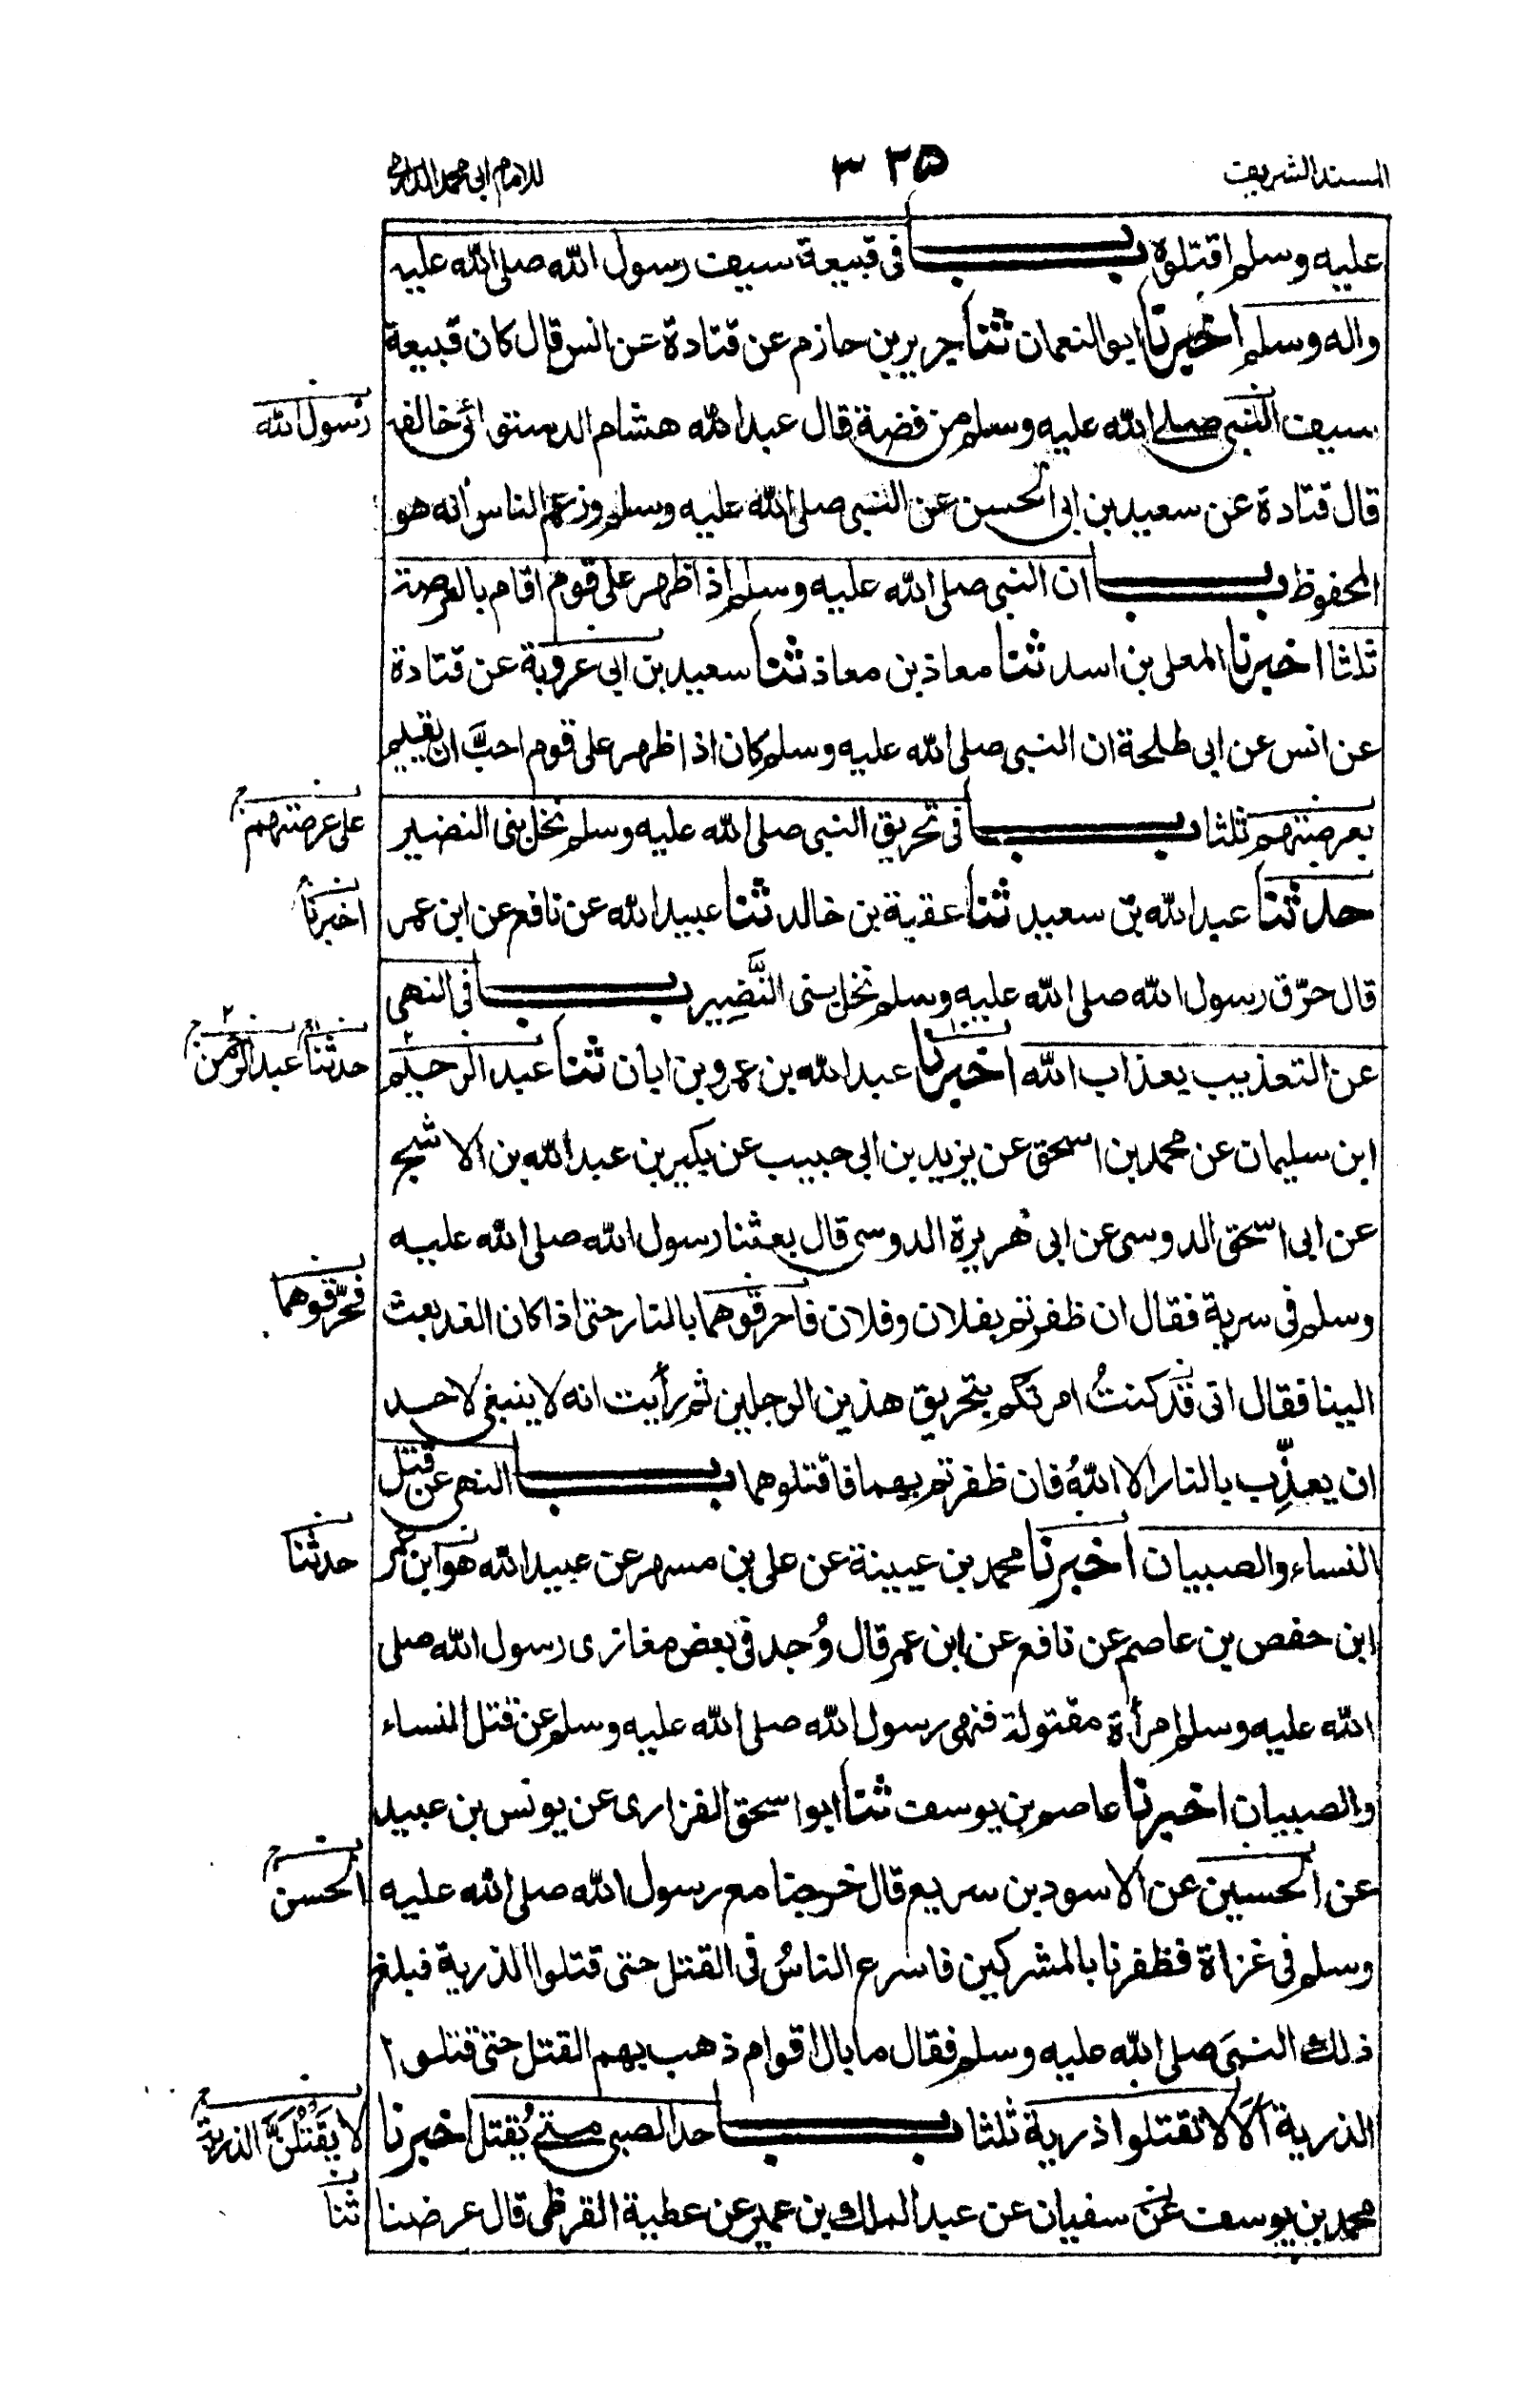 المسند الشريف ٣٢٥ للامام ابى محمد الدارمى
عليه وسلم اقتلوه بــــــاب فى قبيعة سيف رسول الله صلى الله عليه
واله وسلم اخبرنا ابو النعمان ثنا جرير بن حازم عن قتادة عن انس قال كان قبيعة
سيف النبى صلى الله عليه وسلم من فضة قال عبد الله هشام الدستوائى خالفه
رسول الله
قال قتادة عن سعيد بن ابى الحسن عن النبى صلى الله عليه وسلم وزعم الناس انه هو
المحفوظ بــــــاب ان النبى صلى الله عليه وسلم اذا ظهر على قوم اقام بالعرصة
ثلثا اخبرنا المعلى بن اسد ثنا معاذ بن معاذ ثنا سعيد بن ابى عروبة عن قتادة
عن انس عن ابى طلحة ان النبى صلى الله عليه وسلم كان اذا ظهر على قوم احبَّ ان يقيم
بعرصتهم ثلثا بــــــاب فى تحريق النبى صلى الله عليه وسلم نخل بنى النضير
على عرصتهم
حدثنا عبد الله بن سعيد ثنا عقبة بن خالد ثنا عبيد الله عن نافع عن ابن عمر
اخبرنا
قال حرّق رسول الله صلى الله عليه وسلم نخل بنى النَّضِير بــــــاب فى النهى
عن التعذيب بعذاب الله اخبرنا عبد الله بن عمرو بن ابان ثنا عبد الرحيم
حدثنا عبد الرحمن
ابن سليمان عن محمد بن اسحق عن يزيد بن ابى حبيب عن بكير بن عبد الله بن الاشج
عن ابى اسحق الدوسى عن ابى هُريرة الدوسى قال بعثنا رسول الله صلى الله عليه
وسلم فى سرية فقال ان ظفرتم بفلان وفلان فاحرقوهما بالنار حتى اذا كان الغد بعث
فحرّقوهما
الينا فقال انى قد كنتُ امرتكم بتحريق هذين الرجلين ثم رأيت انه لا ينبغى لاحد
ان يعذِّب بالنار الا اللهُ فان ظفرتم بهما فاقتلوهما بــــــاب النهى عن قتل
النساء والصبيان اخبرنا محمد بن عيينة عن على بن مسهر عن عبيد الله هو ابن عمر
حدثنا
ابن حفص بن عاصم عن نافع عن ابن عمر قال وُجد فى بعض مغازى رسول الله صلى
الله عليه وسلم امرأة مقتولة فنهى رسول الله صلى الله عليه وسلم عن قتل النساء
والصبيان اخبرنا عاصم بن يوسف ثنا ابو اسحق الفزارى عن يونس بن عبيد
عن الحسين عن الاسود بن سريع قال خرجنا مع رسول الله صلى الله عليه
الحسن
وسلم فى غزاة فظفرنا بالمشركين فاسرع الناسُ فى القتل حتى قتلوا الذرية فبلغ
ذلك النبىَ صلى الله عليه وسلم فقال ما بال اقوام ذهب بهم القتل حتى قتلوا
الذرية اَلَا لا تقتلوا ذرية ثلثا بــــــاب حد الصبى متى يُقتل اخبرنا
لا يَقْتُلَنَّ الذرية
محمد بن يوسف عن سفيان عن عبد الملك بن عمير عن عطية القرظى قال عرضنا
ثنا